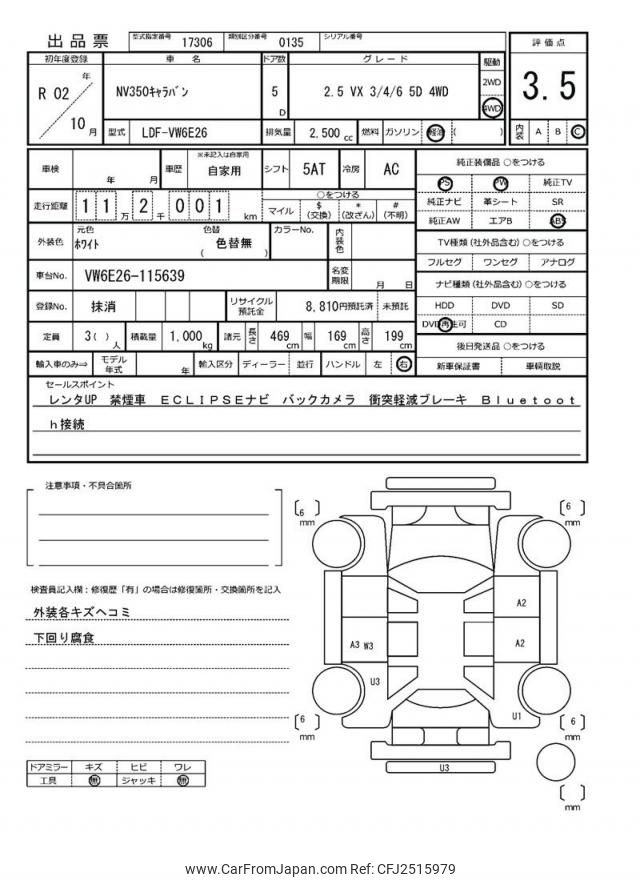 出品票 型式指定番号 17306 類別区分番号 0135 シリアル番号
初年度登録 車名 ドア数 グレード 駆動 評価点
R 02 年 10 月 NV350キャラバン 5 D 2.5 VX 3/4/6 5D 4WD 2WD 4WD 3.5
型式 LDF-VW6E26 排気量 2,500 cc 燃料 ガソリン 軽油 ( ) 内装 A B C
車検 年 月 車歴 ※未記入は自家用 自家用 シフト 5AT 冷房 AC 純正装備品 ○をつける
PS PW 純正TV
走行距離 1 1 万 2 千 0 0 1 km ○をつける
マイル $ (交換) * (改ざん) # (不明)
純正ナビ 革シート SR
純正AW エアB ABS
外装色 元色 ホワイト 色替 ( 色替無 ) カラーNo. 内装色
TV種類 (社外品含む) ○をつける
フルセグ ワンセグ アナログ
車台No. VW6E26-115639 名変期限 月 日
ナビ種類 (社外品含む) ○をつける
登録No. 抹消 リサイクル預託金 8,810円預託済 未預託
HDD DVD SD
DVD再生可 CD
定員 3( ) 人 積載量 1,000 kg 諸元 長さ 469 cm 幅 169 cm 高さ 199 cm
後日発送品 ○をつける
輸入車のみ⇒ モデル年式 年 輸入区分 ディーラー 並行 ハンドル 左 右
新車保証書 車輌取説
セールスポイント
レンタUP 禁煙車 ECLIPSEナビ バックカメラ 衝突軽減ブレーキ Bluetoot
h接続
注意事項・不具合箇所
検査員記入欄：修復歴「有」の場合は修復箇所・交換箇所を記入
外装各キズヘコミ
下回り腐食
ドアミラー キズ ヒビ ワレ
工具 無 ジャッキ 無
6 mm
6 mm
A2
A3 W3
A2
U3
U1
6 mm
6 mm
U3
mm
www.CarFromJapan.com Ref: CFJ2515979